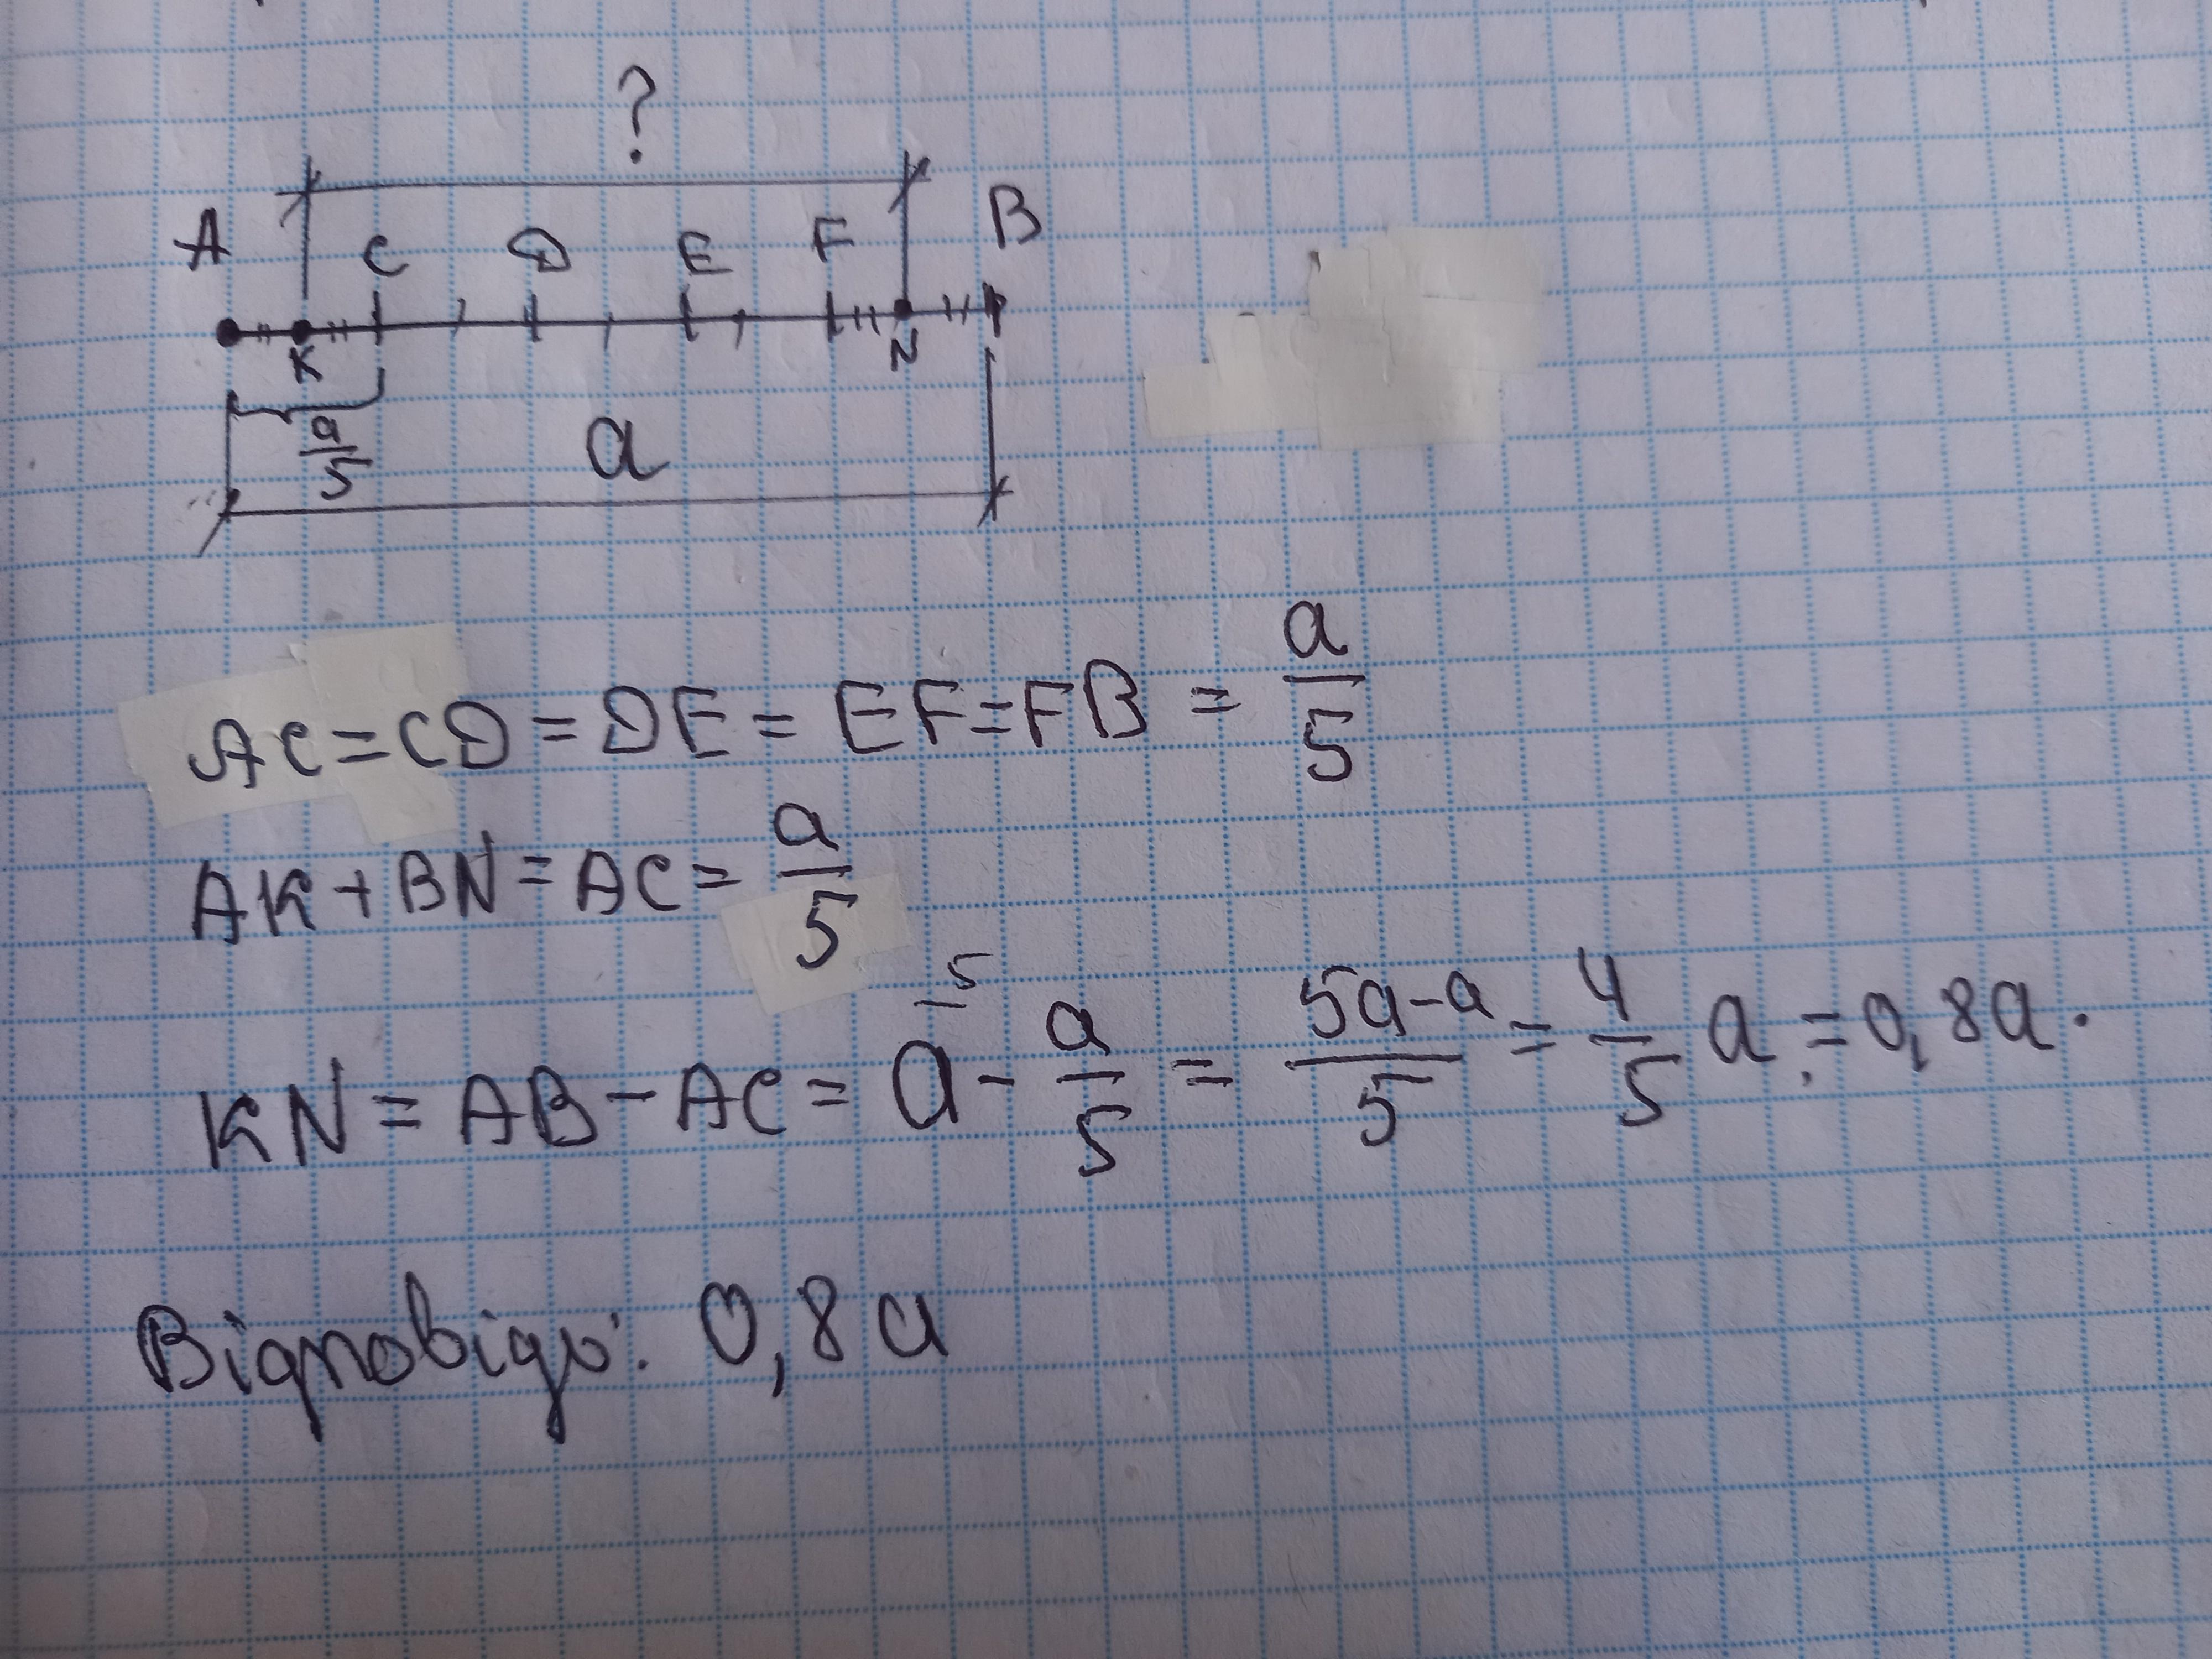 ?
A C D E F B
K N
a/5 a
AC = CD = DE = EF = FB = a/5
AK + BN = AC = a/5
KN = AB - AC = a^5 - a/5 = (5a - a)/5 = 4/5 a = 0,8a.
Відповідь: 0,8a